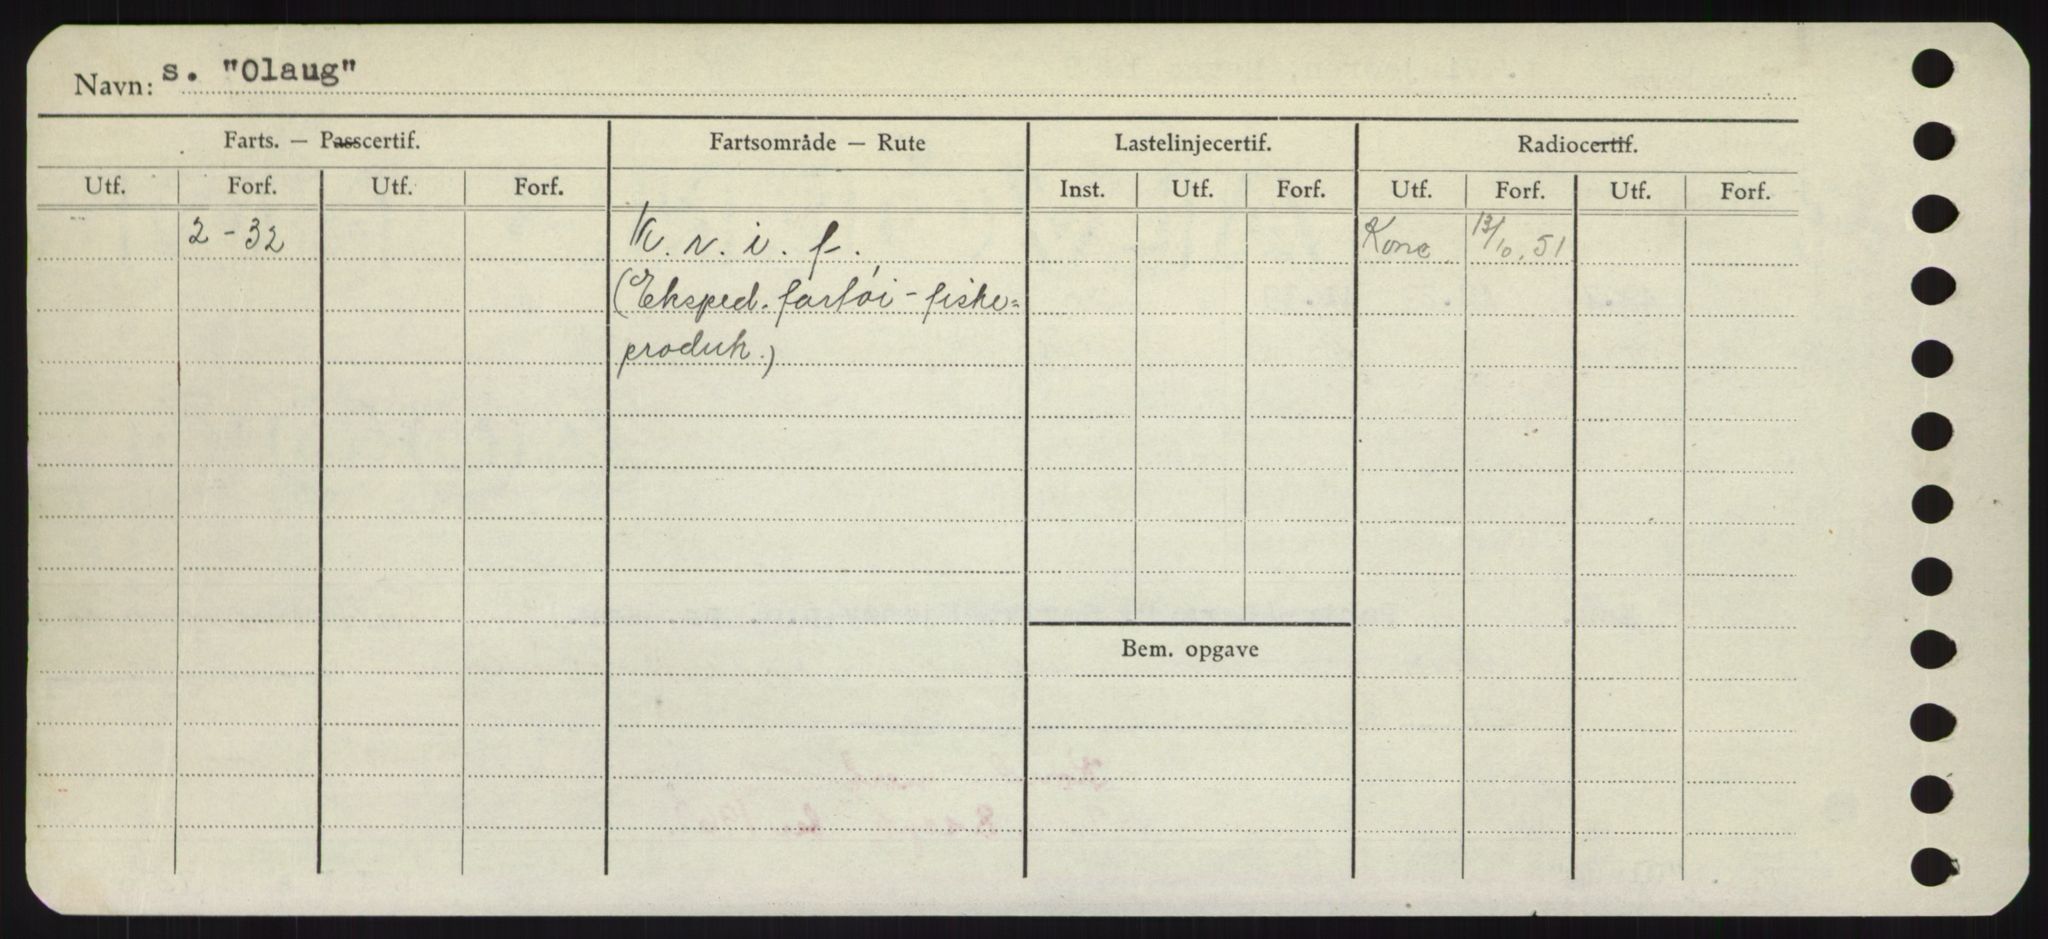 Navn: s. "Olaug"
Farts. — Passcertif. Fartsområde — Rute Lastelinjecertif. Radiocertif.
Utf. Forf. Utf. Forf. Inst. Utf. Forf. Utf. Forf. Utf. Forf.
2-32 K. n. i. f. Konc. 13/10.51
(Eksped. fartøi - fiske=
produk.)
Bem. opgave